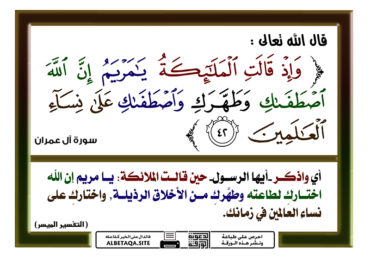 قال الله تعالى :
﴿ وَإِذْ قَالَتِ الْمَلَٰٓئِكَةُ يَٰمَرْيَمُ إِنَّ اللَّهَ
اصْطَفَىٰكِ وَطَهَّرَكِ وَاصْطَفَىٰكِ عَلَىٰ نِسَآءِ
الْعَٰلَمِينَ ٤٢ ﴾
سورة آل عمران
أي واذكر -أيها الرسول- حين قالت الملائكة: يا مريم إن الله
اختارك لطاعته وطهّرك من الأخلاق الرذيلة, واختارك على
نساء العالمين في زمانك.
( التفسير الميسر )
احرص على طباعة
ونشر هذه الورقة
الدال على الخير كفاعله
ALBETAQA.SITE